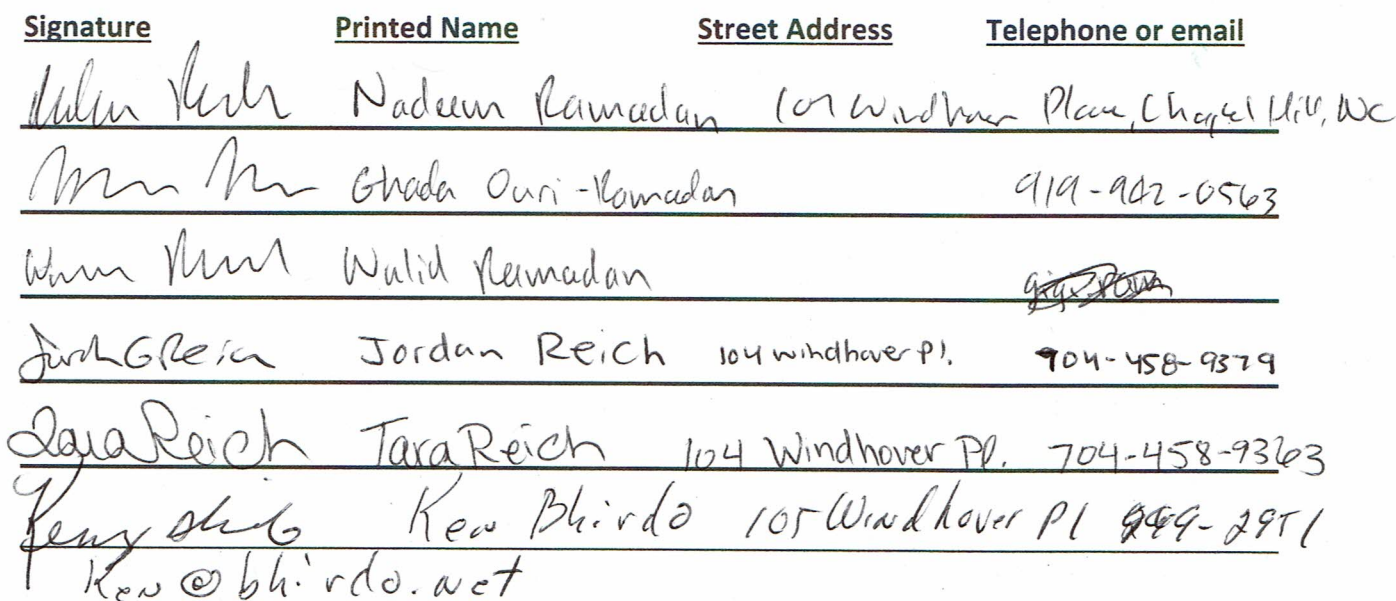 Signature Printed Name Street Address Telephone or email
Nadeem Ramadan 107 Windhover Place, Chapel Hill, NC
Ghada Ouri-Ramadan 919-942-0563
Walid Ramadan
Jordan Reich 104 windhover Pl. 704-458-9379
Tara Reich Tara Reich 104 Windhover Pl. 704-458-9363
Ken Bhirdo 105 Windhover Pl 949-2951
Ken@bhirdo.net